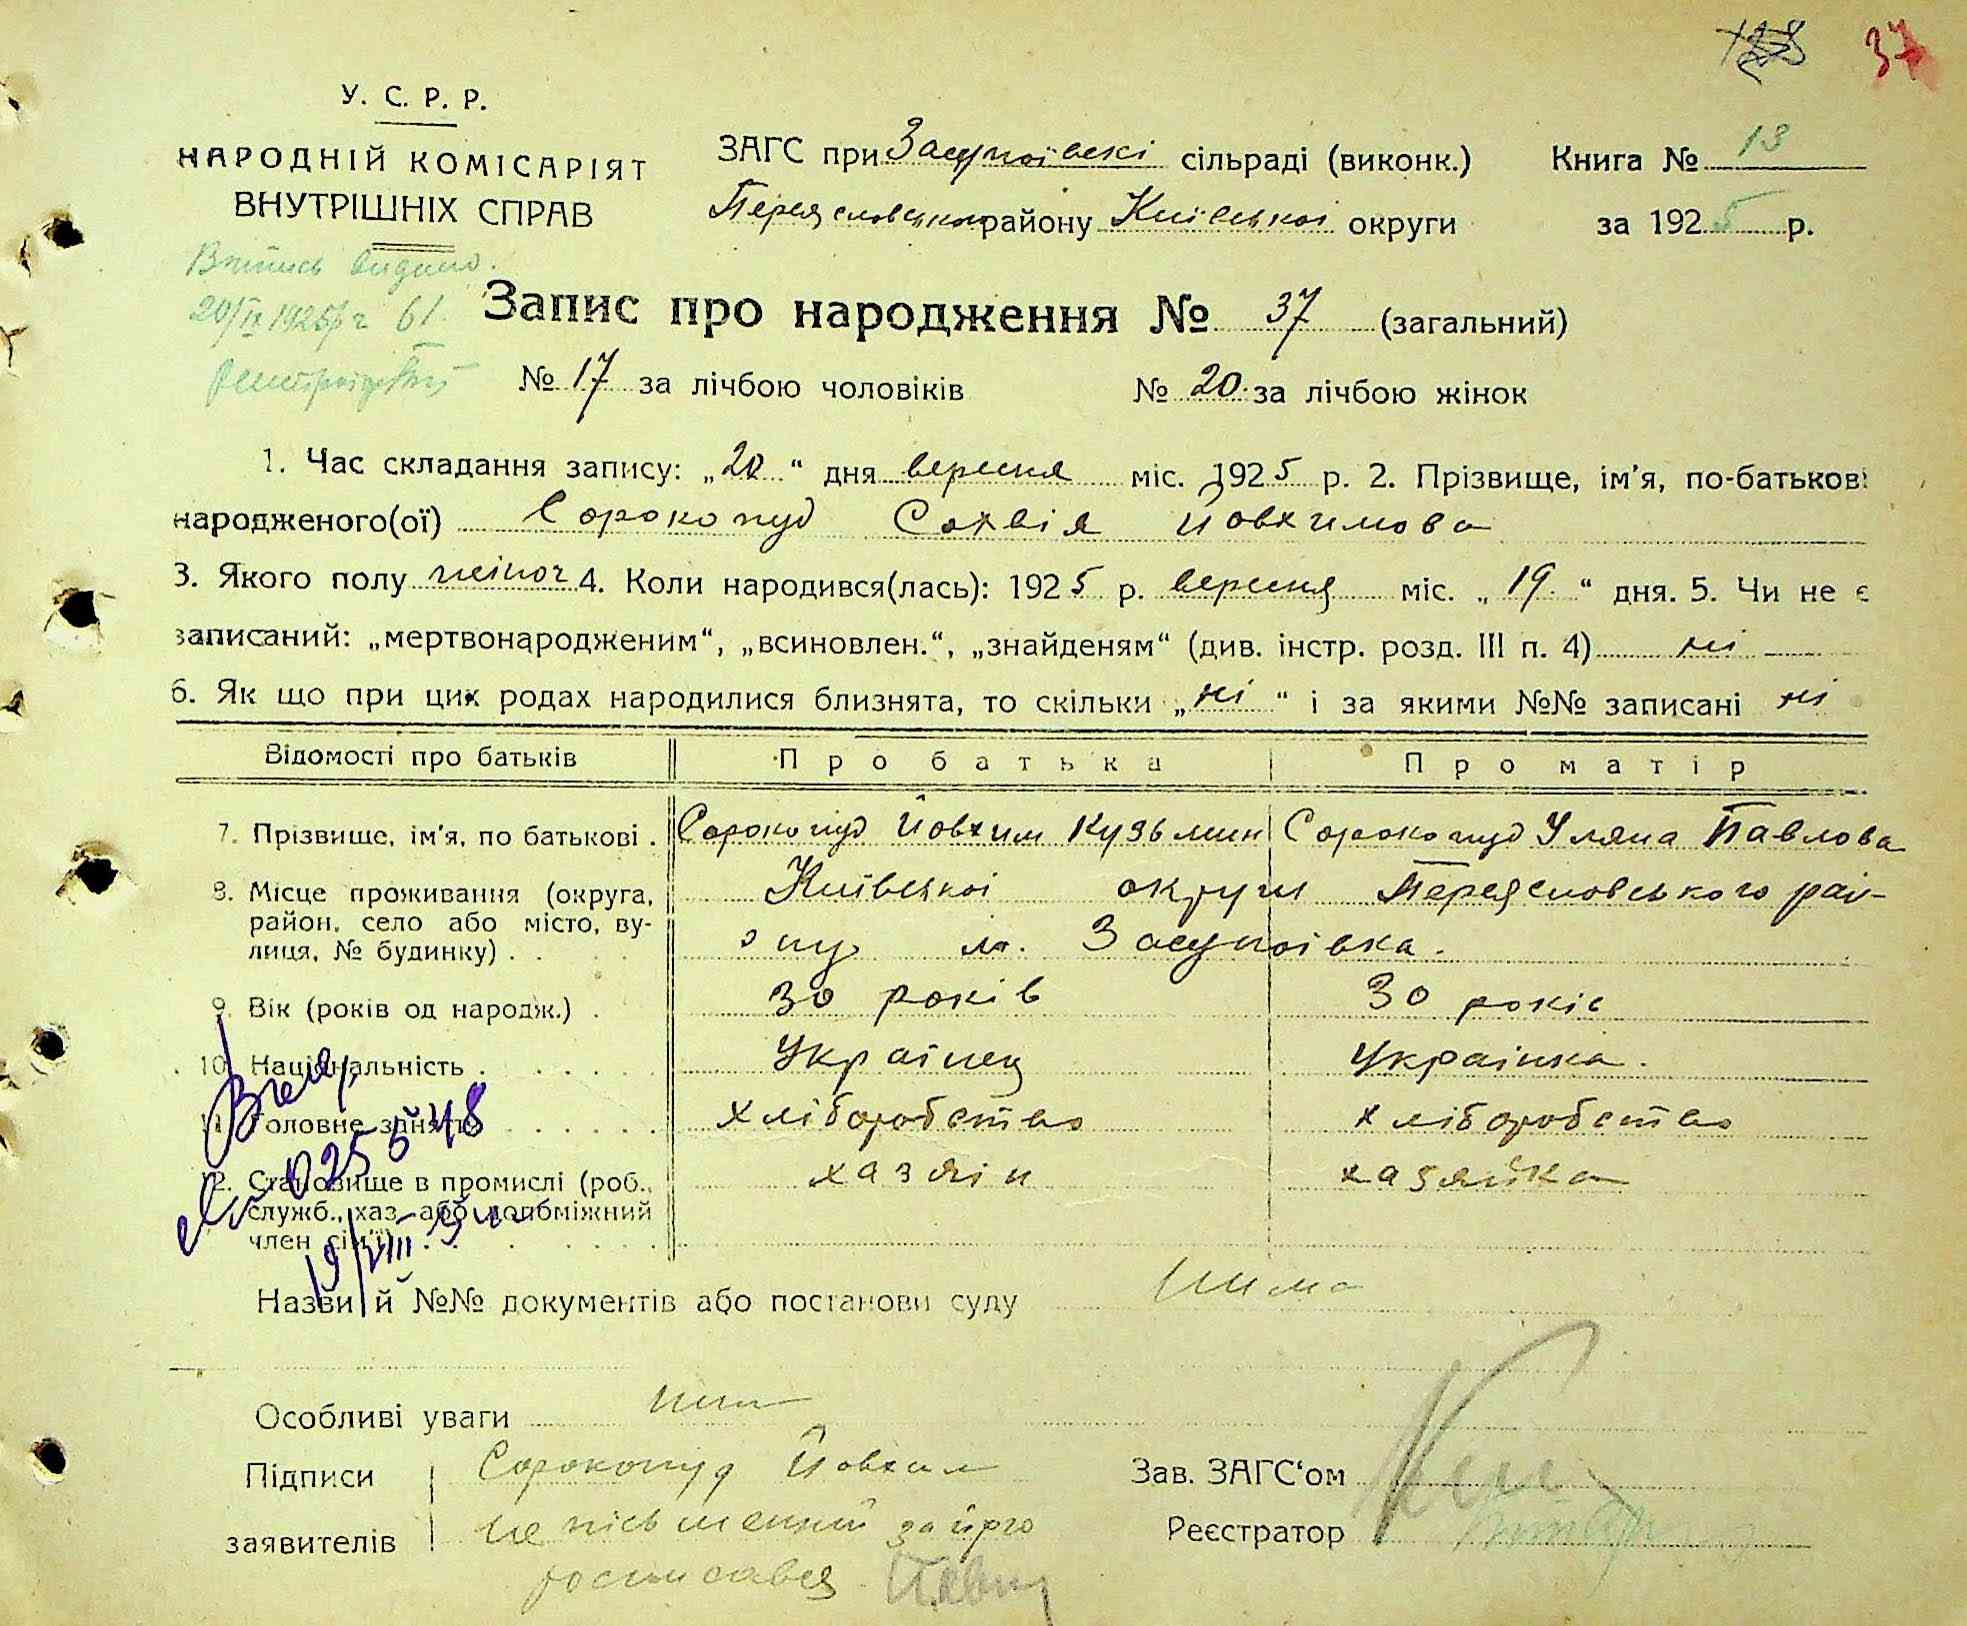 37
У. С. Р. Р.
НАРОДНІЙ КОМІСАРІЯТ
ВНУТРІШНІХ СПРАВ
ЗАГС при Засупоївскі сільраді (виконк.) Книга № 13
Переяславського району Київської округи за 1925 р.
Випись видано
20/IX 1925 р № 61
Запис про народження № 37 (загальний)
№ 17 за лічбою чоловіків № 20 за лічбою жінок
1. Час складання запису: „20“ дня вересня міс. 1925 р. 2. Прізвище, ім'я, по-батькові
народженого(ої) Сорокопуд Софвія Йовхимова
3. Якого полу жіноч 4. Коли народився(лась): 1925 р. вересня міс. „19.“ дня. 5. Чи не є
записаний: „мертвонародженим“, „всиновлен.“, „знайденям“ (див. інстр. розд. III п. 4) ні
6. Як що при цих родах народилися близнята, то скільки „ні“ і за якими №№ записані ні
Відомості про батьків Про батька Про матір
7. Прізвище, ім'я, по батькові . Сорокопуд Йовхим Кузьмин Сорокопуд Уляна Павлова
8. Місце проживання (округа, Київської округи Переясловського рай-
район, село або місто, ву- ону м. Засупоївка.
лиця, № будинку) . .
9. Вік (років од народж.) . 30 років 30 років
10. Національність . Українец Українка.
11. Головне заняття хліборобство хліборобство
12. Становище в промислі (роб., хазяін хазяйка
служб., хаз. або допоміжний
член сім'ї)
025648
19/VIII
Назви й №№ документів або постанови суду нима
Особливі уваги
Підписи Сорокопуд Йовхим Зав. ЗАГС'ом
заявителів не письменний за його Реєстратор
росписався